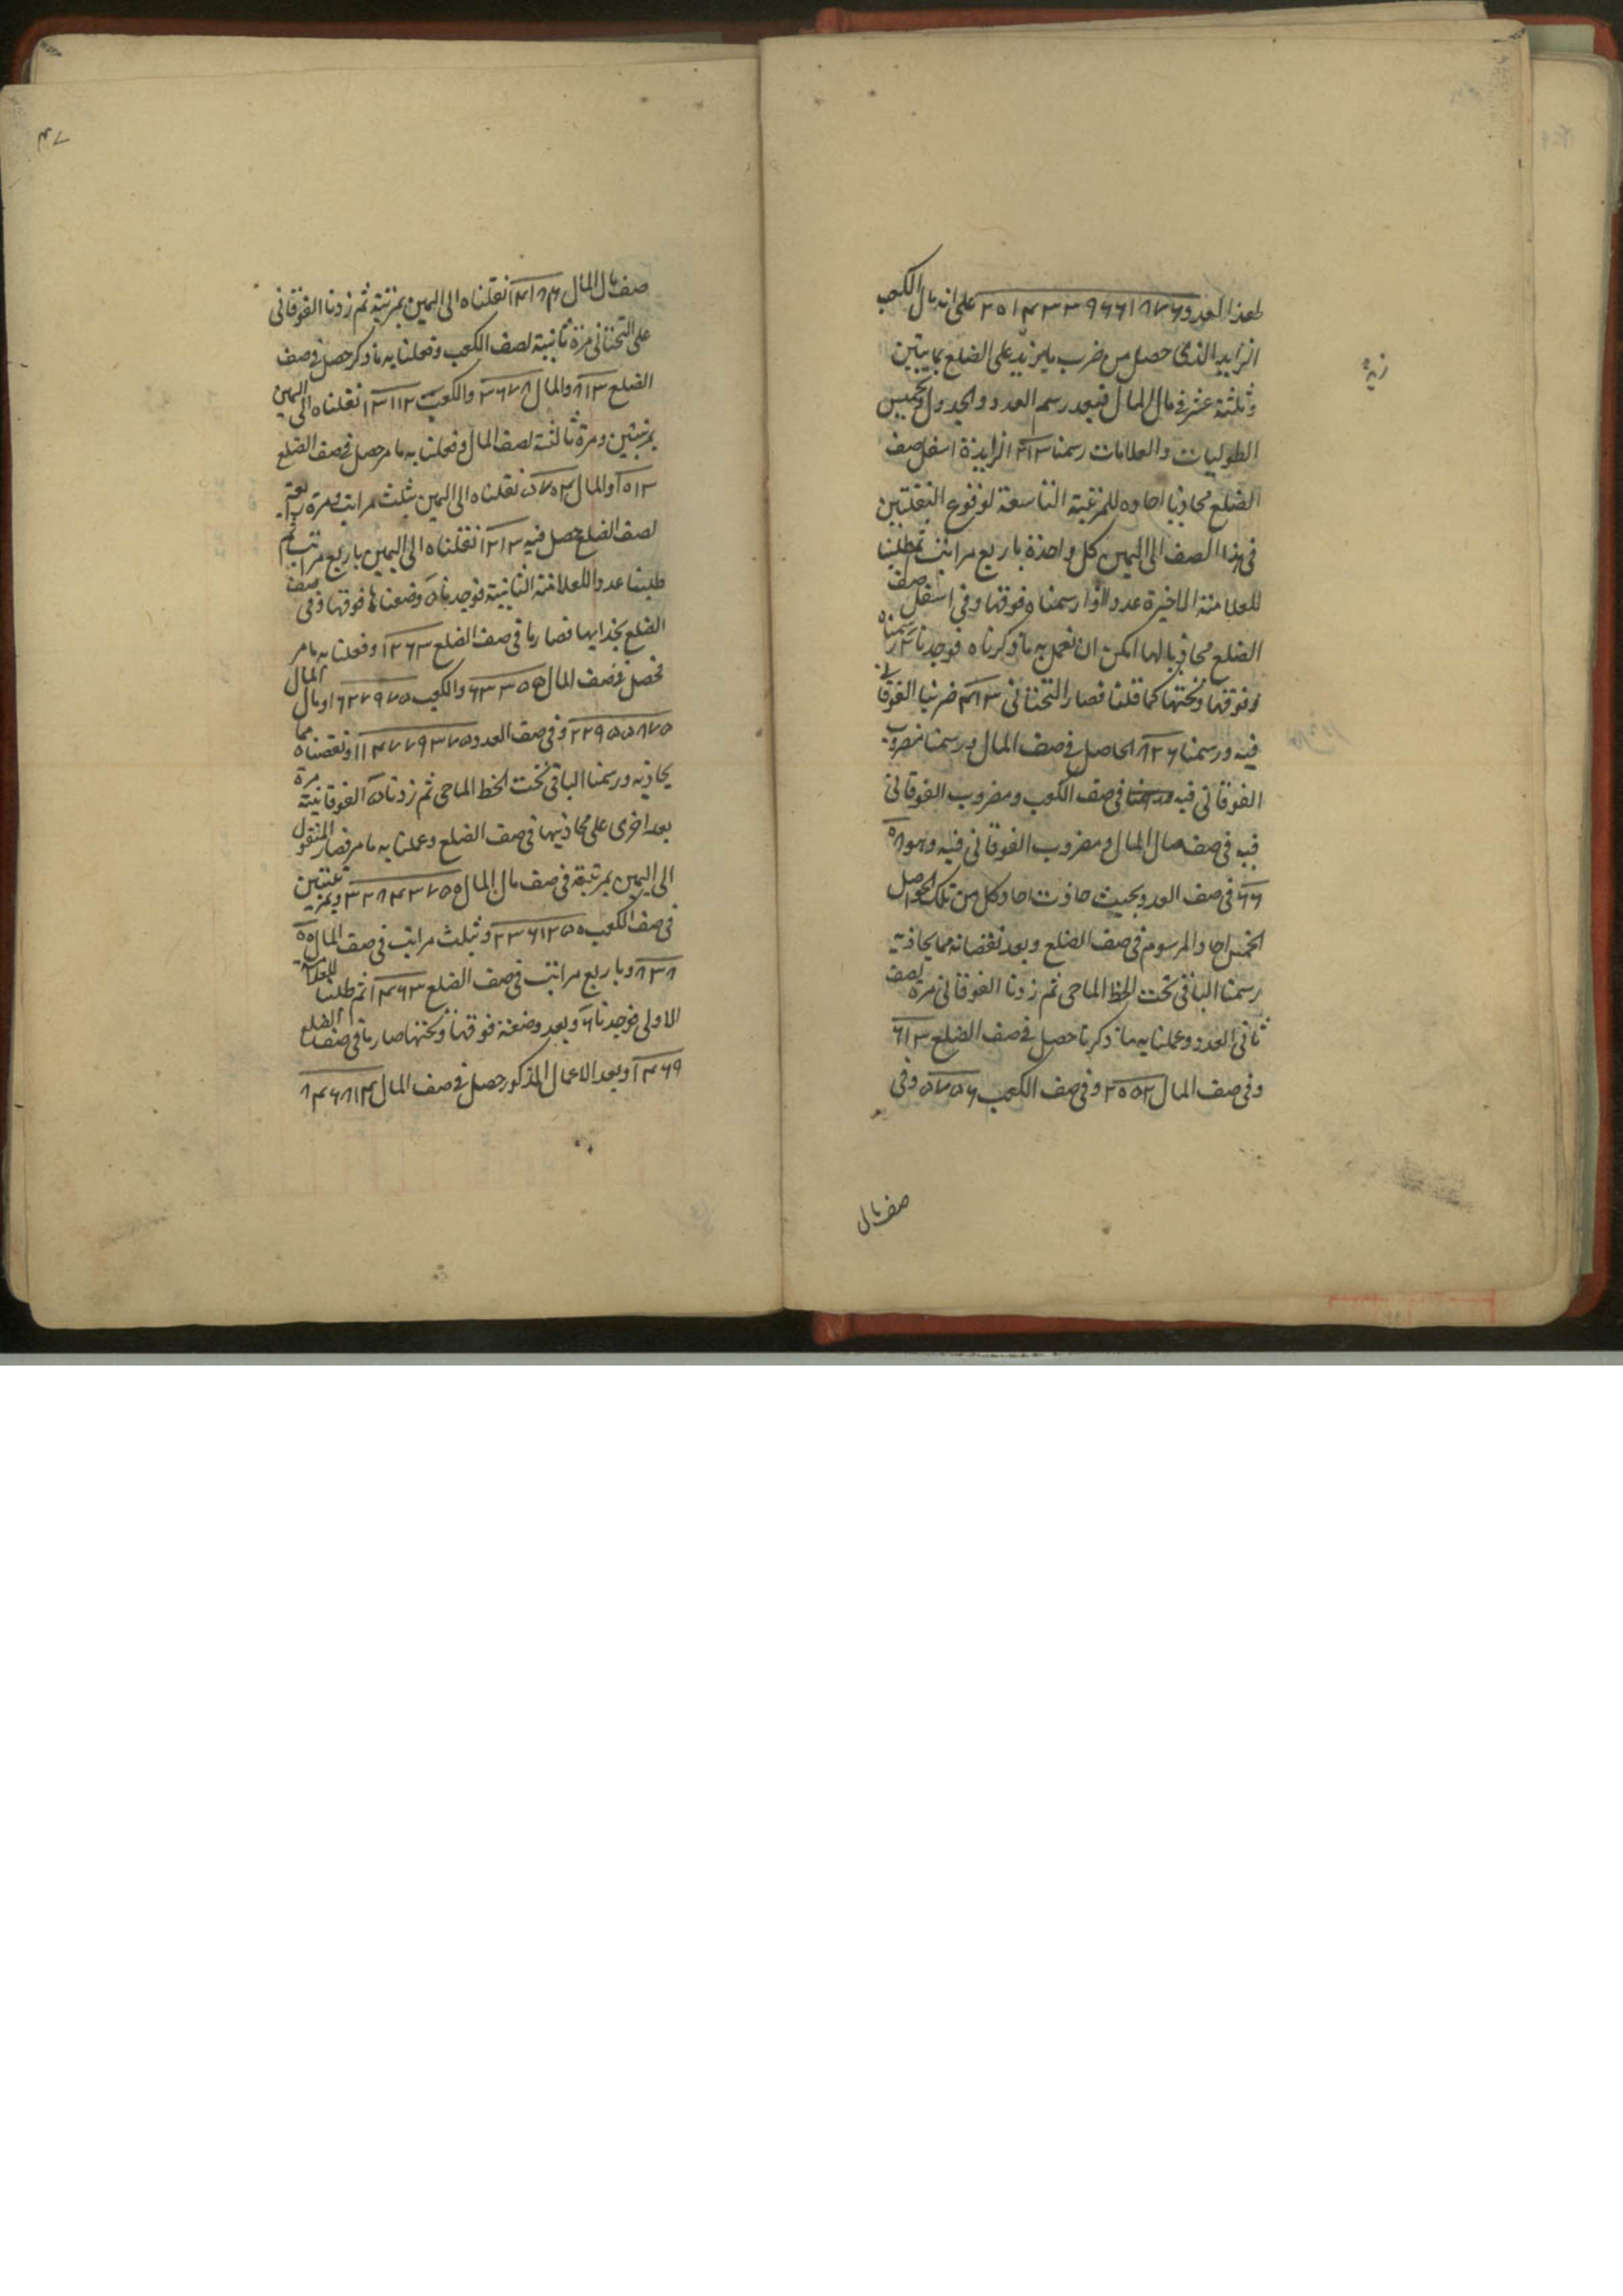 لهذا العدد ٢٥١٤٣٣٩٦٦١٨٧٦ على انه مال الكعب
الزايد الذى حصل من ضرب ما يزيد على الضلع بمايتين
وثلثة عشر فى مال المال فبعد رسم العدد والجدول
الطوليات والعلامات رسمنا ٢١٣ الزايدة اسفل صف
الضلع محاذيا احاده للمرتبة التاسعة لوقوع النقلتين
فى هذا الصف الى اليمين كل واحدة باربع مراتب ثم طلبنا
للعلامة الاخيرة عددا لو ارسمناه فوقها وفى اسفل صف
الضلع محاذيا لها امكن ان نعمل به ما ذكرناه فوجدنا رسمناه
فوقها وتحتها كما قلنا فصار التحتانى ضربنا الفوقانى
فيه ورسمنا ٨٢٦ الحاصل فى صف المال ورسمنا مضروب
الفوقانى فيه فى صف الكعب ومضروب الفوقانى
فيه فى صف مال المال ومضروب الفوقانى فيه وهو
فى صف العدد بحيث حاذت احاد كل من تلك الحواصل
الخمس احاد المرسوم فى صف الضلع وبعد نقصانه مما يحاذيه
رسمنا الباقى تحت الخط الماحى ثم زدنا الفوقانى مرة لصف
ثانى العدد وعملنا به ما ذكرنا حصل فى صف الضلع ٦١٣
وفى صف المال ٢٥٥٢ وفى صف الكعب ٥٧٥٦ وفى
صف مال
٤٧
صف مال المال نقلناه الى اليمين بمرتبة ثم زدنا الفوقانى
على التحتانى مرة ثانية لصف الكعب وفعلنا به ما ذكر حصل فى صف
الضلع ٨١٣ والمال ٣٦٧٨ والكعب ١٣١١٢ نقلناه الى اليمين
بمرتبتين ومرة ثالثة لصف المال وفعلنا به ما مر حصل فى صف الضلع
والمال نقلناه الى اليمين بثلث مراتب ومرة رابعة
لصف الضلع حصل فيه ١٢١٣ نقلناه الى اليمين باربع مراتب ثم
طلبنا عددا للعلامة الثانية فوجدنا ٥ وضعناها فوقها وفى صف
الضلع بحذايها فصار ما فى صف الضلع ١٢٦٣ وفعلنا به ما مر
فحصل فى صف المال والكعب ومال المال
٢٢٩٥٥٨٧٥ وفى صف العدد ١١٤٧٧٩٣٧٥ ونقصناه مما
يحاذيه ورسمنا الباقى تحت الخط الماحى ثم زدنا ٥ الفوقانية مرة
بعد اخرى على محاذيها فى صف الضلع وعملنا به ما مر فصار المنقول
الى اليمين بمرتبة فى صف مال المال وبمرتبتين
فى صف الكعب وبثلث مراتب فى صف المال
وباربع مراتب فى صف الضلع ١٤٦٣ ثم طلبنا للعلامة
الاولى فوجدنا ٦ وبعد وضعه فوقها وتحتها صار ما فى صف الضلع
١٤٦٩ وبعد الاعمال المذكور حصل فى صف المال